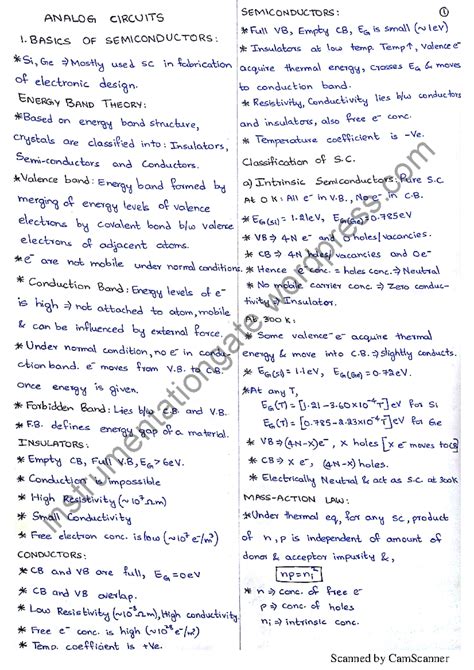 ANALOG CIRCUITS
1. BASICS OF SEMICONDUCTORS:
* Si, Ge ⇒ Mostly used sc in fabrication
of electronic design.
ENERGY BAND THEORY:
* Based on energy band structure,
crystals are classified into: Insulators,
Semi-conductors and Conductors.
* Valence band: Energy band formed by
merging of energy levels of valence
electrons by covalent band b/w valence
electrons of adjacent atoms.
* e⁻ are not mobile under normal conditions.
* Conduction Band: Energy levels of e⁻
is high ⇒ not attached to atom, mobile
& can be influenced by external force.
* Under normal condition, no e⁻ in condu-
ction band. e⁻ moves from V.B. to C.B.
once energy is given.
* Forbidden Band: Lies b/w C.B. and V.B.
* F.B. defines energy gap of a material.
INSULATORS:
* Empty CB, Full V.B, E_G > 6eV.
* Conduction is impossible
* High Resistivity (~10⁷ Ωm)
* Small Conductivity
* Free electron conc. is low (~10⁷ e⁻/m³)
CONDUCTORS:
* CB and VB are full, E_G = 0eV
* CB and VB overlap.
* Low Resistivity (~10⁻⁸ Ωm), High conductivity.
* Free e⁻ conc. is high (~10²⁸ e⁻/m³)
* Temp. coefficient is +Ve.
SEMICONDUCTORS:
①
* Full VB, Empty CB, E_G is small (~1eV)
* Insulators at low temp. Temp↑, valence e⁻
acquire thermal energy, crosses E_G & moves
to conduction band.
* Resistivity, Conductivity lies b/w conductors
and insulators, also free e⁻ conc.
* Temperature coefficient is -Ve.
Classification of S.C.
a) Intrinsic Semiconductors: Pure S.C
At 0K: All e⁻ in V.B., No e⁻ in C.B.
* E_G(Si) = 1.21eV, E_G(Ge) = 0.785eV
* VB ⇒ 4N e⁻ and 0 holes/vacancies.
* CB ⇒ 4N holes/vacancies and 0 e⁻
* Hence e⁻ conc. = holes conc. ⇒ Neutral
* No mobile carrier conc. ⇒ Zero conduc-
tivity ⇒ Insulator.
At 300K:
* Some valence e⁻ acquire thermal
energy & move into C.B. ⇒ slightly conducts.
* E_G(Si) = 1.1eV, E_G(Ge) = 0.72eV.
* At any T,
E_G(T) = [1.21 - 3.60×10⁻⁴T] eV for Si
E_G(T) = [0.785 - 2.23×10⁻⁴T] eV for Ge
* VB ⇒ (4N-X)e⁻, X holes [X e⁻ moves to CB]
* CB ⇒ X e⁻, (4N-X) holes.
* Electrically Neutral & act as S.C. at 300K
MASS-ACTION LAW:
* Under thermal eq, for any sc, product
of n, p is independent of amount of
donor & acceptor impurity &,
np = nᵢ²
* n ⇒ conc. of free e⁻
p ⇒ conc. of holes
nᵢ ⇒ intrinsic conc.
instrumentationgate.wordpress.com
Scanned by CamScanner